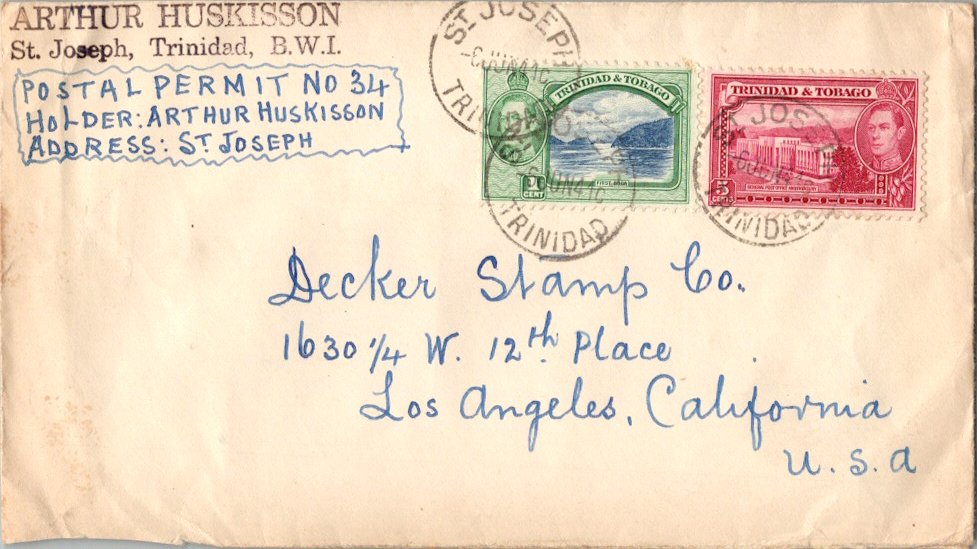 ARTHUR HUSKISSON
St. Joseph, Trinidad, B.W.I.
POSTAL PERMIT NO 34
HOLDER: ARTHUR HUSKISSON
ADDRESS: ST JOSEPH
ST JOSEPH
-6JUN41C
TRINIDAD
TRINIDAD & TOBAGO
1
CENT
FIRST BOCA
6JUN41C
TRINIDAD
TRINIDAD & TOBAGO
ST JOSEPH
-6JUN4
5
CENTS
GENERAL POST OFFICE AND TREASURY
TRINIDAD
Decker Stamp Co.
1630 1/4 W. 12th Place
Los Angeles, California
U. S. A